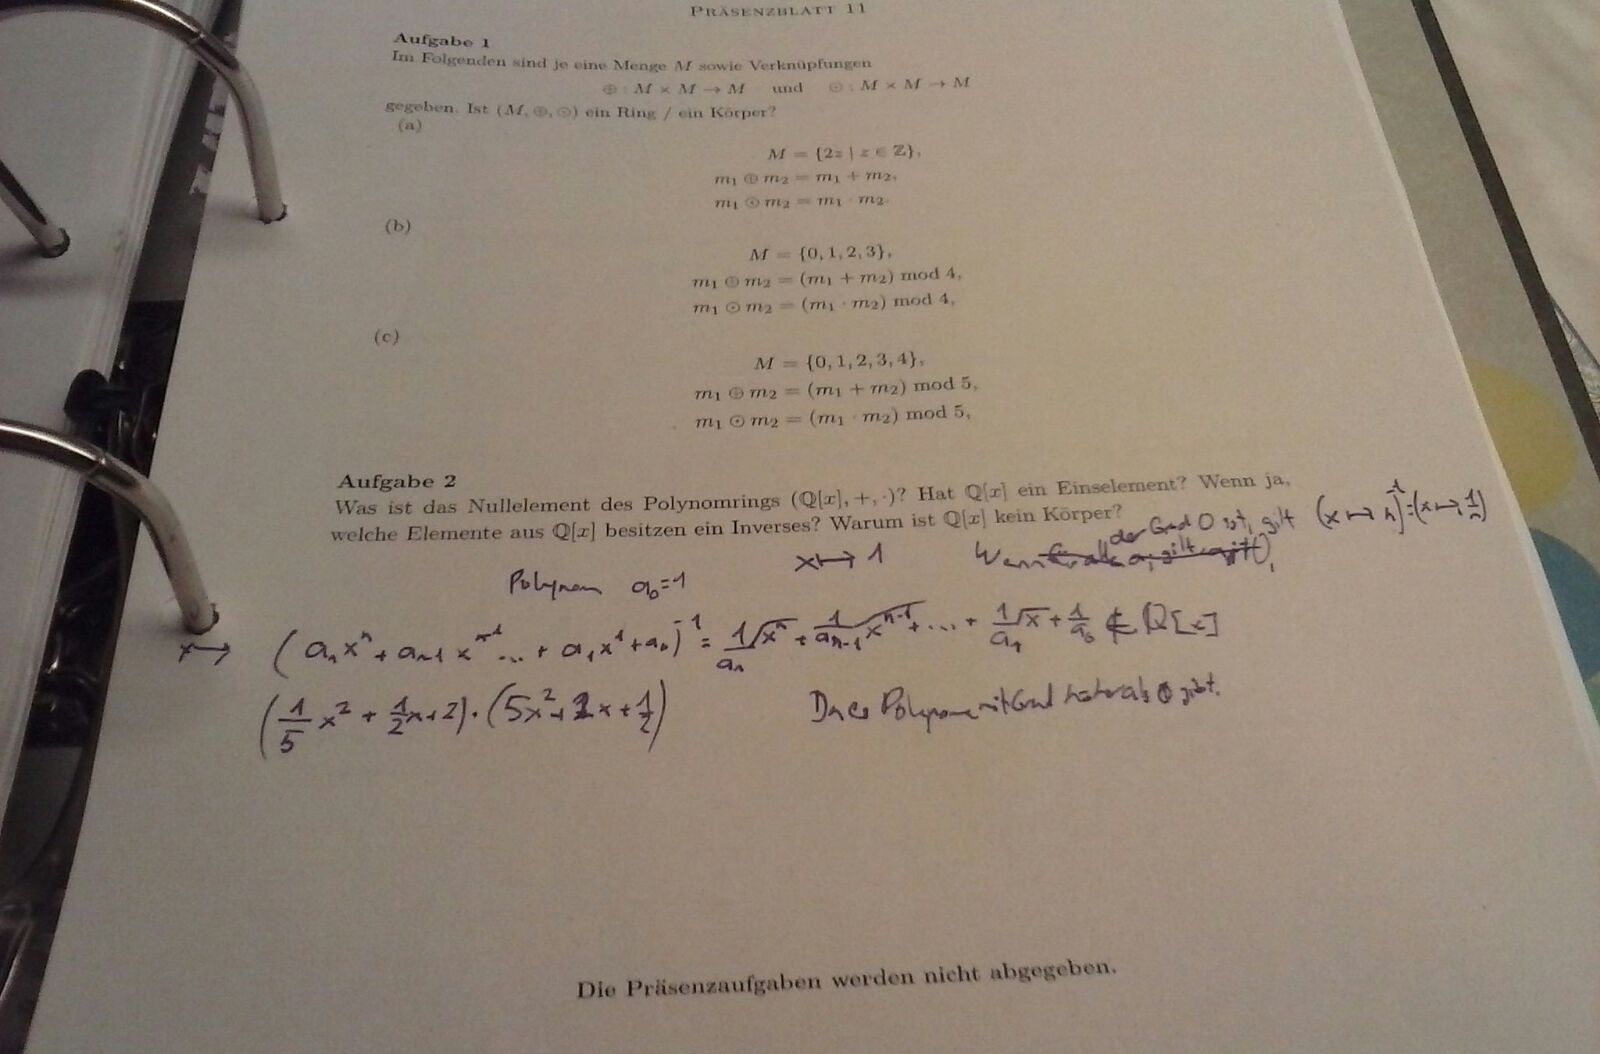 PRÄSENZBLATT 11
Aufgabe 1
Im Folgenden sind je eine Menge M sowie Verknüpfungen
⊕ : M × M → M und ⊙ : M × M → M
gegeben. Ist (M, ⊕, ⊙) ein Ring / ein Körper?
(a)
M = {2z | z ∈ ℤ},
m₁ ⊕ m₂ = m₁ + m₂,
m₁ ⊙ m₂ = m₁ · m₂.
(b)
M = {0, 1, 2, 3},
m₁ ⊕ m₂ = (m₁ + m₂) mod 4,
m₁ ⊙ m₂ = (m₁ · m₂) mod 4,
(c)
M = {0, 1, 2, 3, 4},
m₁ ⊕ m₂ = (m₁ + m₂) mod 5,
m₁ ⊙ m₂ = (m₁ · m₂) mod 5,
Aufgabe 2
Was ist das Nullelement des Polynomrings (ℚ[x], +, ·)? Hat ℚ[x] ein Einselement? Wenn ja,
welche Elemente aus ℚ[x] besitzen ein Inverses? Warum ist ℚ[x] kein Körper?
der Grad 0 ist, gilt (x ↦ n)⁻¹ = (x ↦ 1/n)
x ↦ 1 Wenn
Polynom a₀ = 1
x ↦ (aₙxⁿ + aₙ₋₁xⁿ⁻¹ ... + a₁x¹ + a₀)⁻¹ = 1/aₙ √xⁿ + 1/aₙ₋₁ √xⁿ⁻¹ + ... + 1/a₁ √x + 1/a₀ ∉ ℚ[x]
(1/5 x² + 1/2 x + 2) · (5x² + 2x + 1/2) Da es Polynome mit Grad als 0 gibt.
Die Präsenzaufgaben werden nicht abgegeben.